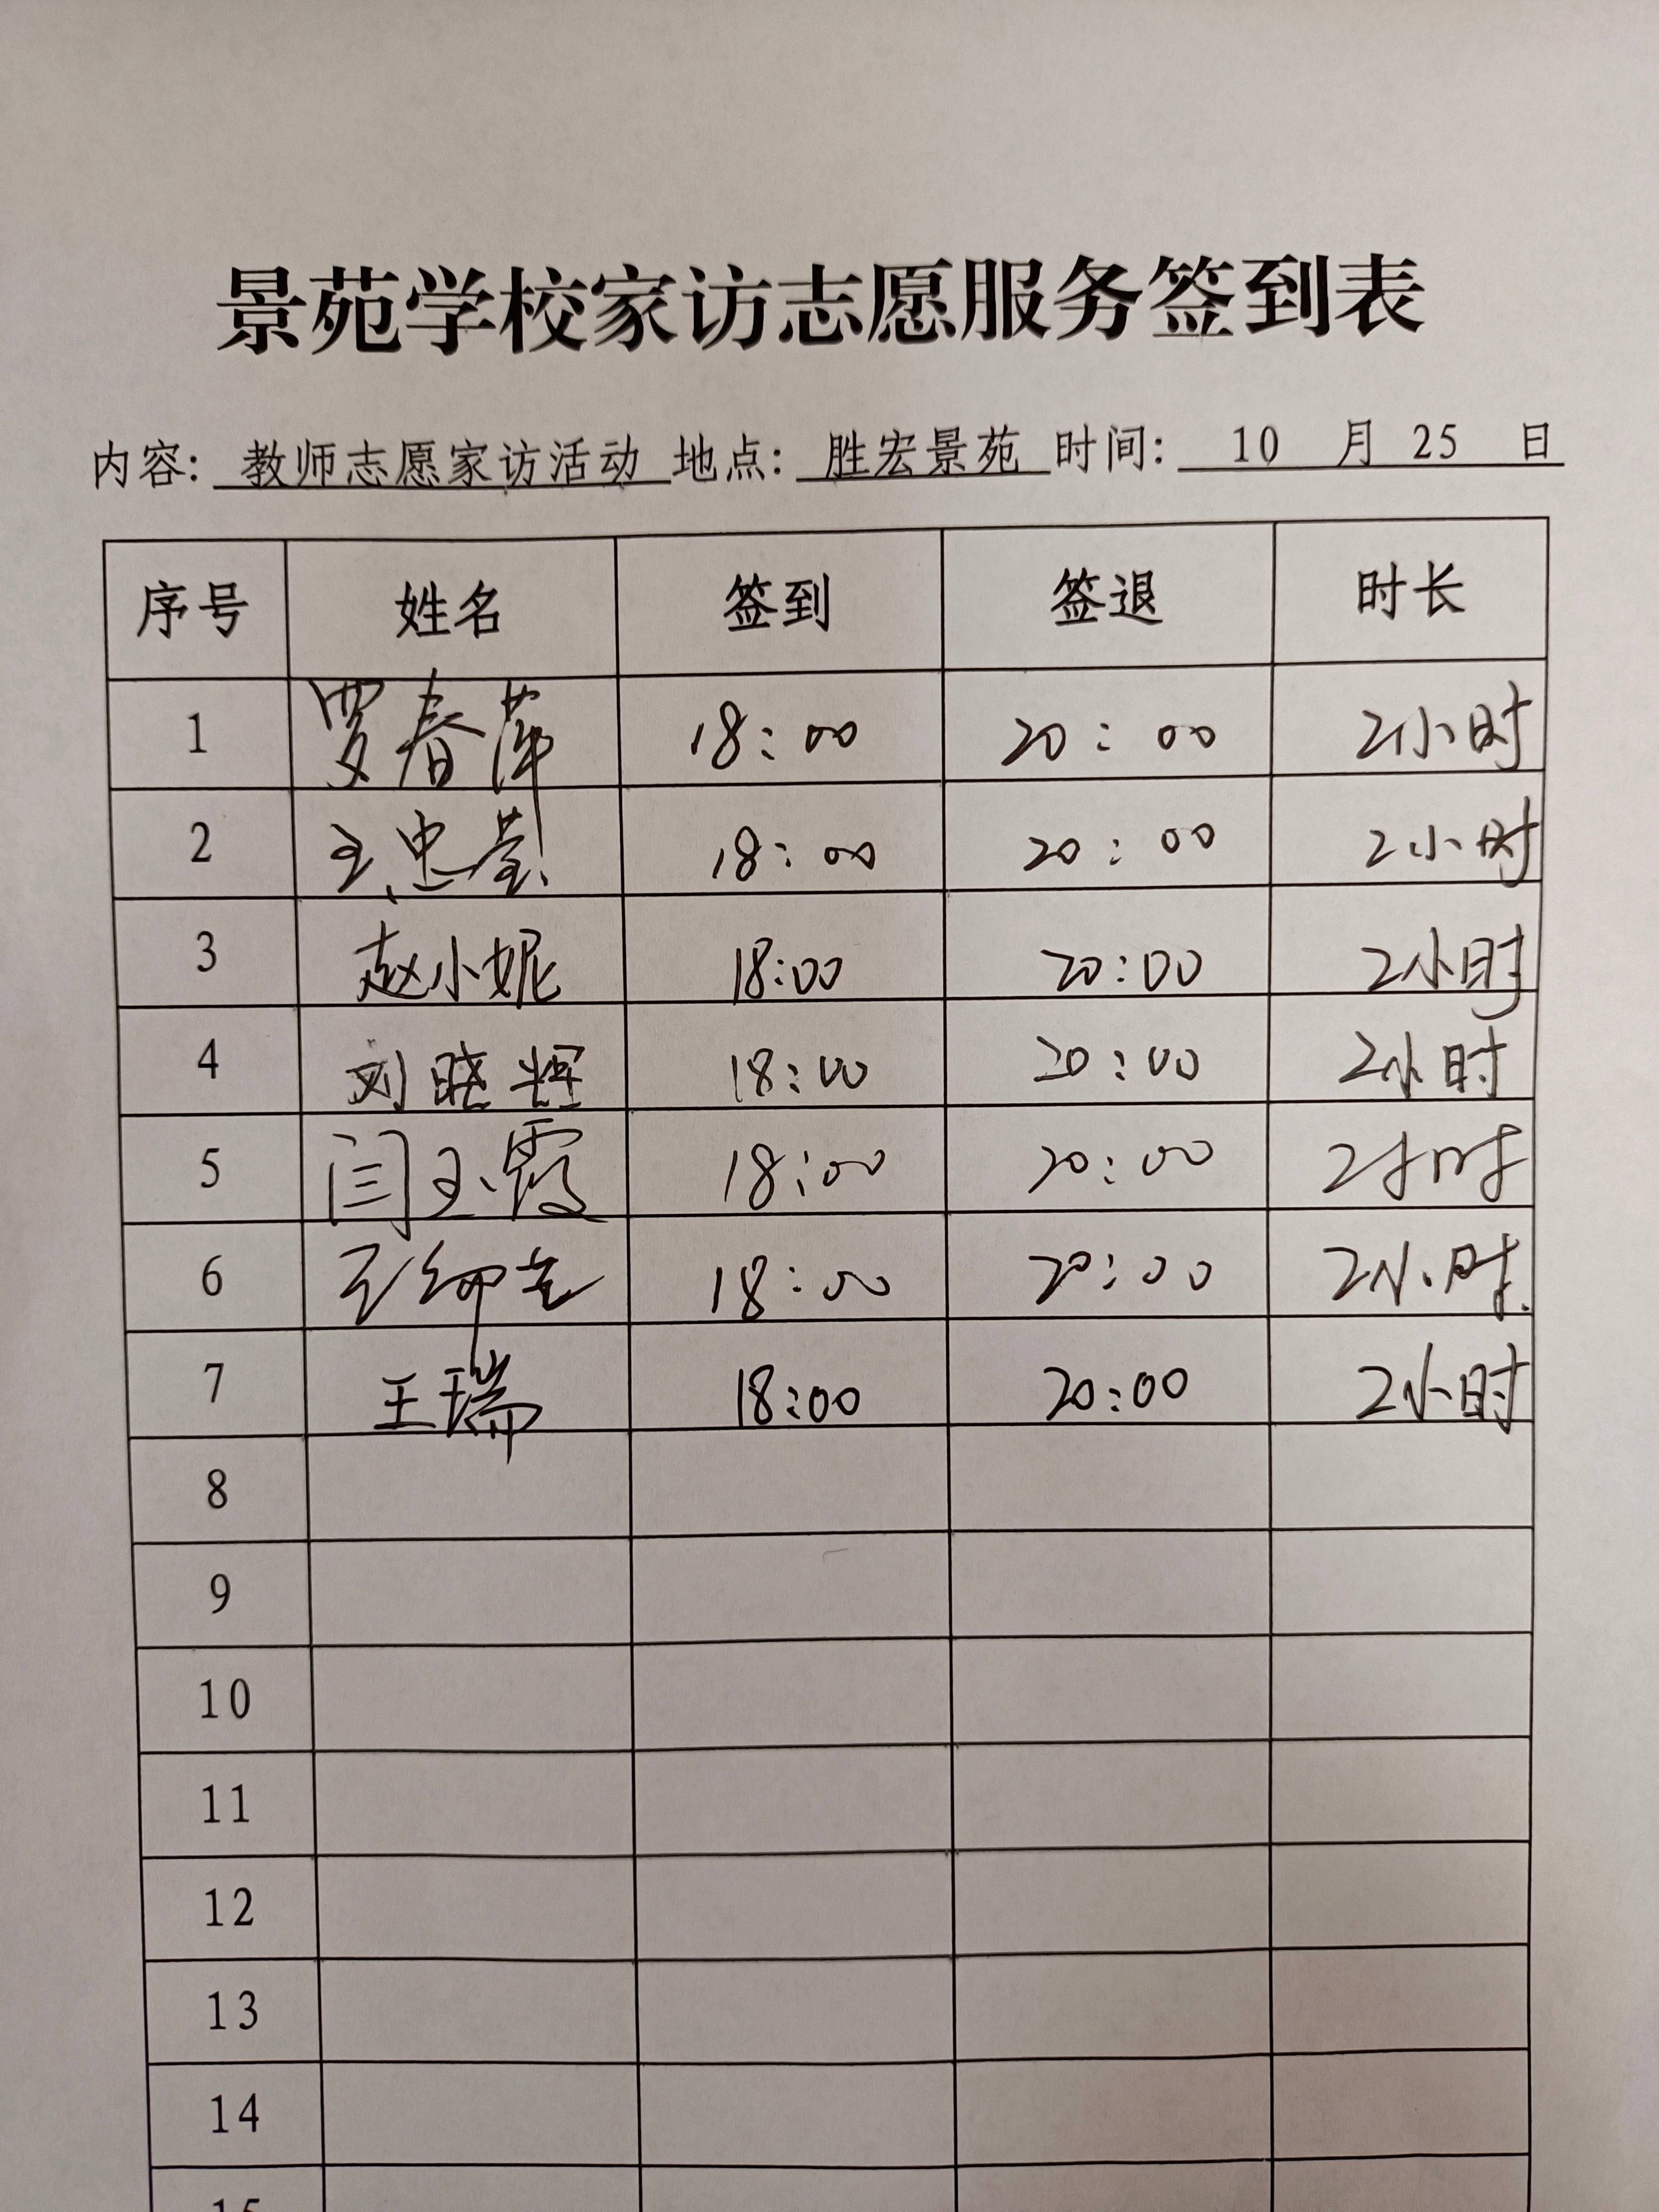 景苑学校家访志愿服务签到表
内容: 教师志愿家访活动 地点: 胜宏景苑 时间: 10 月 25 日
序号 姓名 签到 签退 时长
1 贾春萍 18:00 20:00 2小时
2 王忠莹 18:00 20:00 2小时
3 赵小妮 18:00 20:00 2小时
4 刘晓辉 18:00 20:00 2小时
5 闫玉霞 18:00 20:00 2小时
6 18:00 20:00 2小时.
7 王瑞 18:00 20:00 2小时
8
9
10
11
12
13
14
15